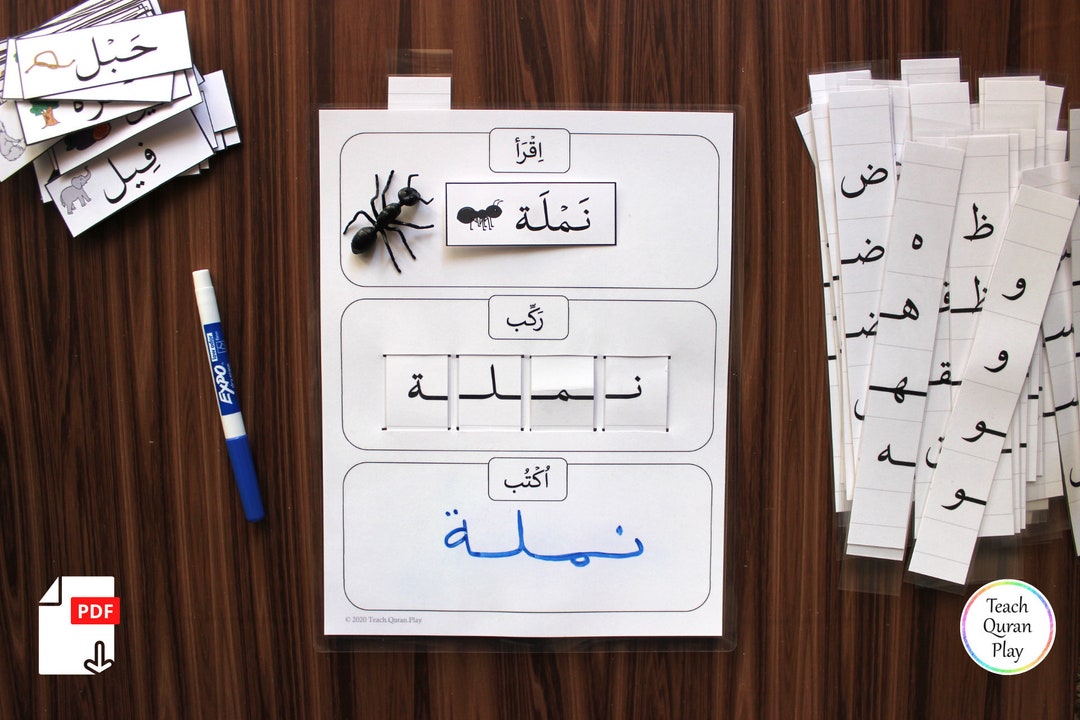 حَبْل
فِيل
اِقْرَأ
نَمْلَة
رَكِّب
نـ ـمـ ـلـ ـة
اُكْتُب
نملة
© 2020 Teach.Quran.Play
EXPO
ض
ـضـ
ه
هـ
ـهـ
ـه
ظ
و
و
ـو
ـو
PDF
Teach
Quran
Play